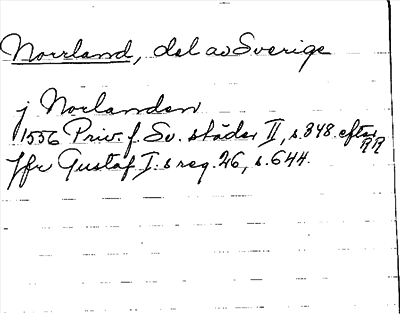 Norrland, del av Sverige
j Norlanden
1556 Priv. f. Sv. städer II, s. 348. efter RR
Jfr Gustaf I:s reg. 26, s. 644.